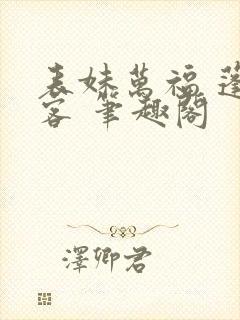 表妹萬福 蓬
客 筆趣閣
澤卿君